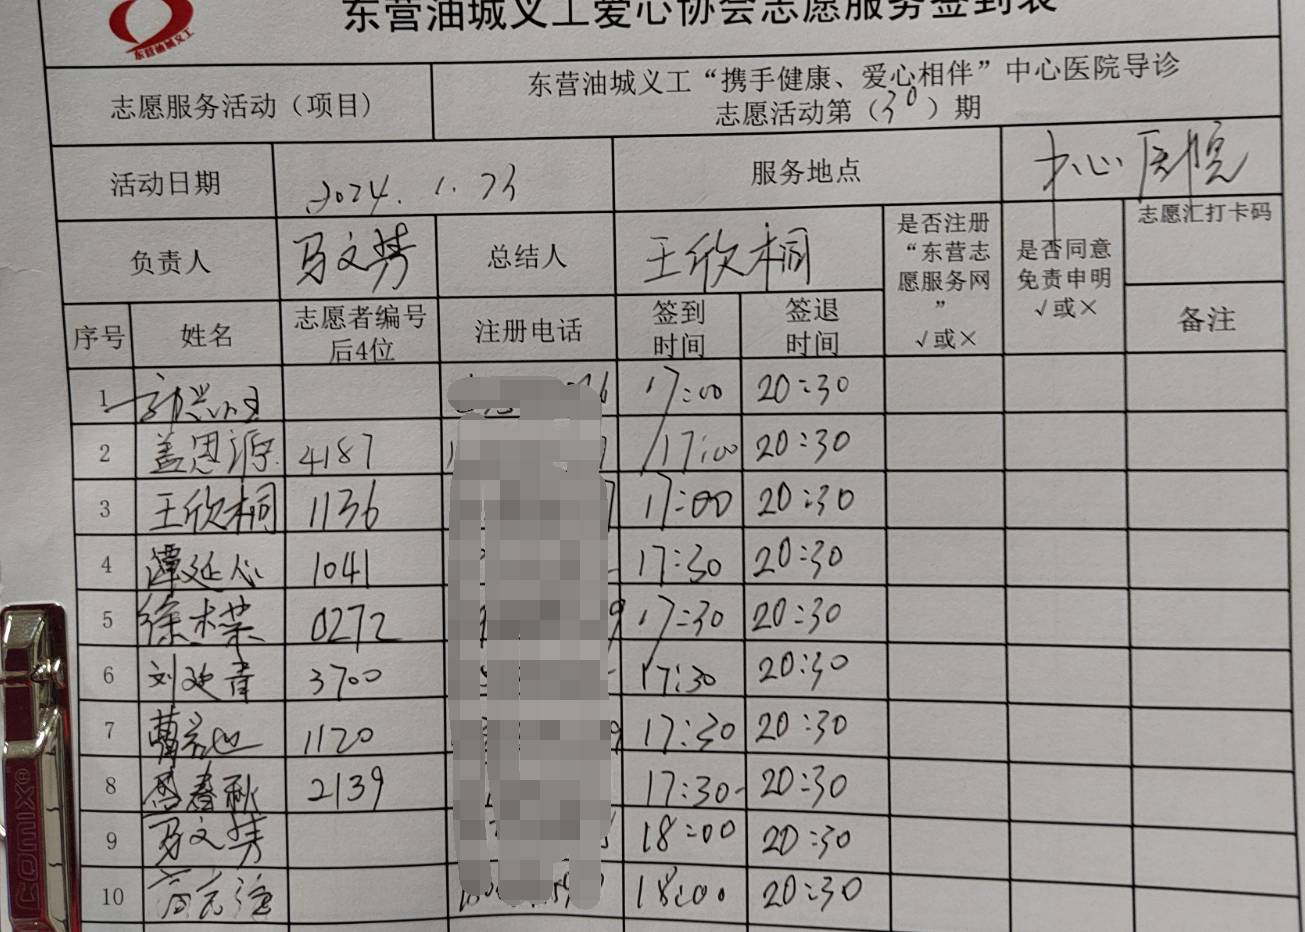 东营油城义工
东营油城义工爱心协会志愿服务签到表
志愿服务活动（项目）
东营油城义工“携手健康、爱心相伴”中心医院导诊
志愿活动第（30）期
活动日期 2024.1.23 服务地点 中心医院
负责人 马文芳 总结人 王欣桐
是否注册
“东营志
愿服务网
”
√或×
是否同意
免责申明
√或×
志愿汇打卡码
备注
序号 姓名
志愿者编号
后4位
注册电话
签到
时间
签退
时间
1 17:00 20:30
2 盖思源 4187 17:00 20:30
3 王欣桐 1136 17:00 20:30
4 谭延心 1041 17:30 20:30
5 徐术荣 0272 17:30 20:30
6 刘 青 3700 17:30 20:30
7 1120 17:30 20:30
8 春秋 2139 17:30 20:30
9 马文芳 18:00 20:30
10 18:00 20:30